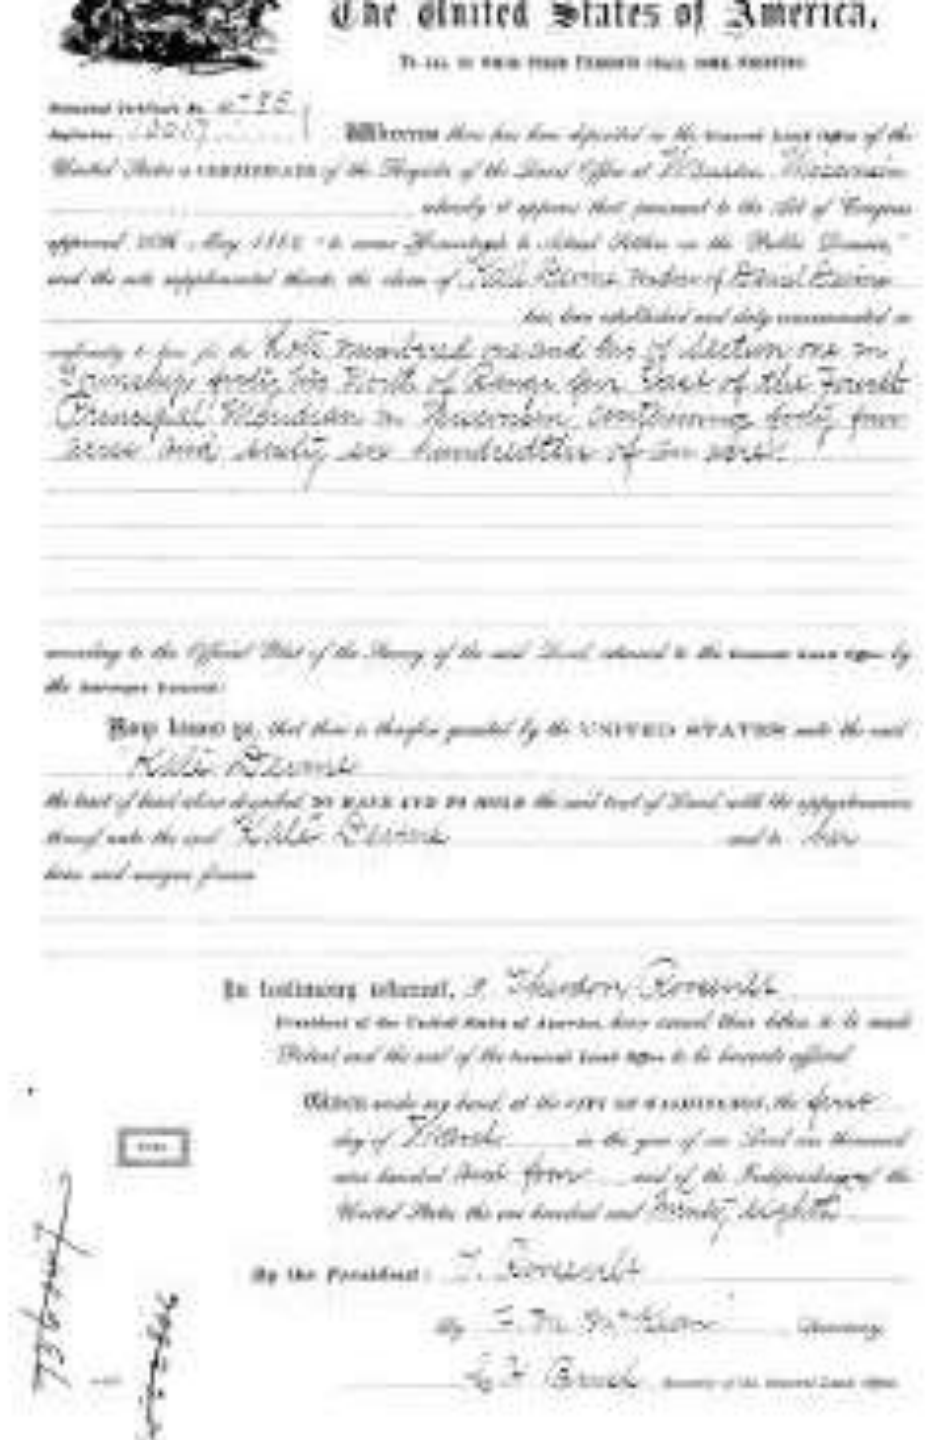 The United States of America,
To all to whom these Presents shall come, Greeting:
Homestead Certificate No.
Application
Whereas there has been deposited in the General Land Office of the
United States a CERTIFICATE of the Register of the Land Office at Wausau, Wisconsin
whereby it appears that pursuant to the Act of Congress
approved 20th May, 1862, "to secure Homesteads to Actual Settlers on the Public Domain,"
and the acts supplemental thereto, the claim of Kate Devine widow of Devine
has been established and duly consummated in
conformity to law for the Lots numbered one and two of Section one in
Township forty two North of Range ten East of the Fourth
Principal Meridian in Wisconsin containing forty four
acres and sixty six hundredths of an acre.
according to the Official Plat of the Survey of the said Land, returned to the General Land Office by
the Surveyor General:
Now know ye, that there is therefore granted by the UNITED STATES unto the said
Kate Devine
the tract of Land above described, TO HAVE AND TO HOLD the said tract of Land, with the appurtenances
thereof, unto the said Kate Devine and to her
heirs and assigns forever.
In testimony whereof, I, Theodore Roosevelt
President of the United States of America, have caused these letters to be made
Patent, and the seal of the General Land Office to be hereunto affixed.
Given under my hand, at the CITY OF WASHINGTON, the first
day of March in the year of our Lord one thousand
nine hundred and four and of the Independence of the
United States the one hundred and twenty eighth
By the President: T. Roosevelt
By F. M. McKean Secretary.
C. H. Brush Recorder of the General Land Office.